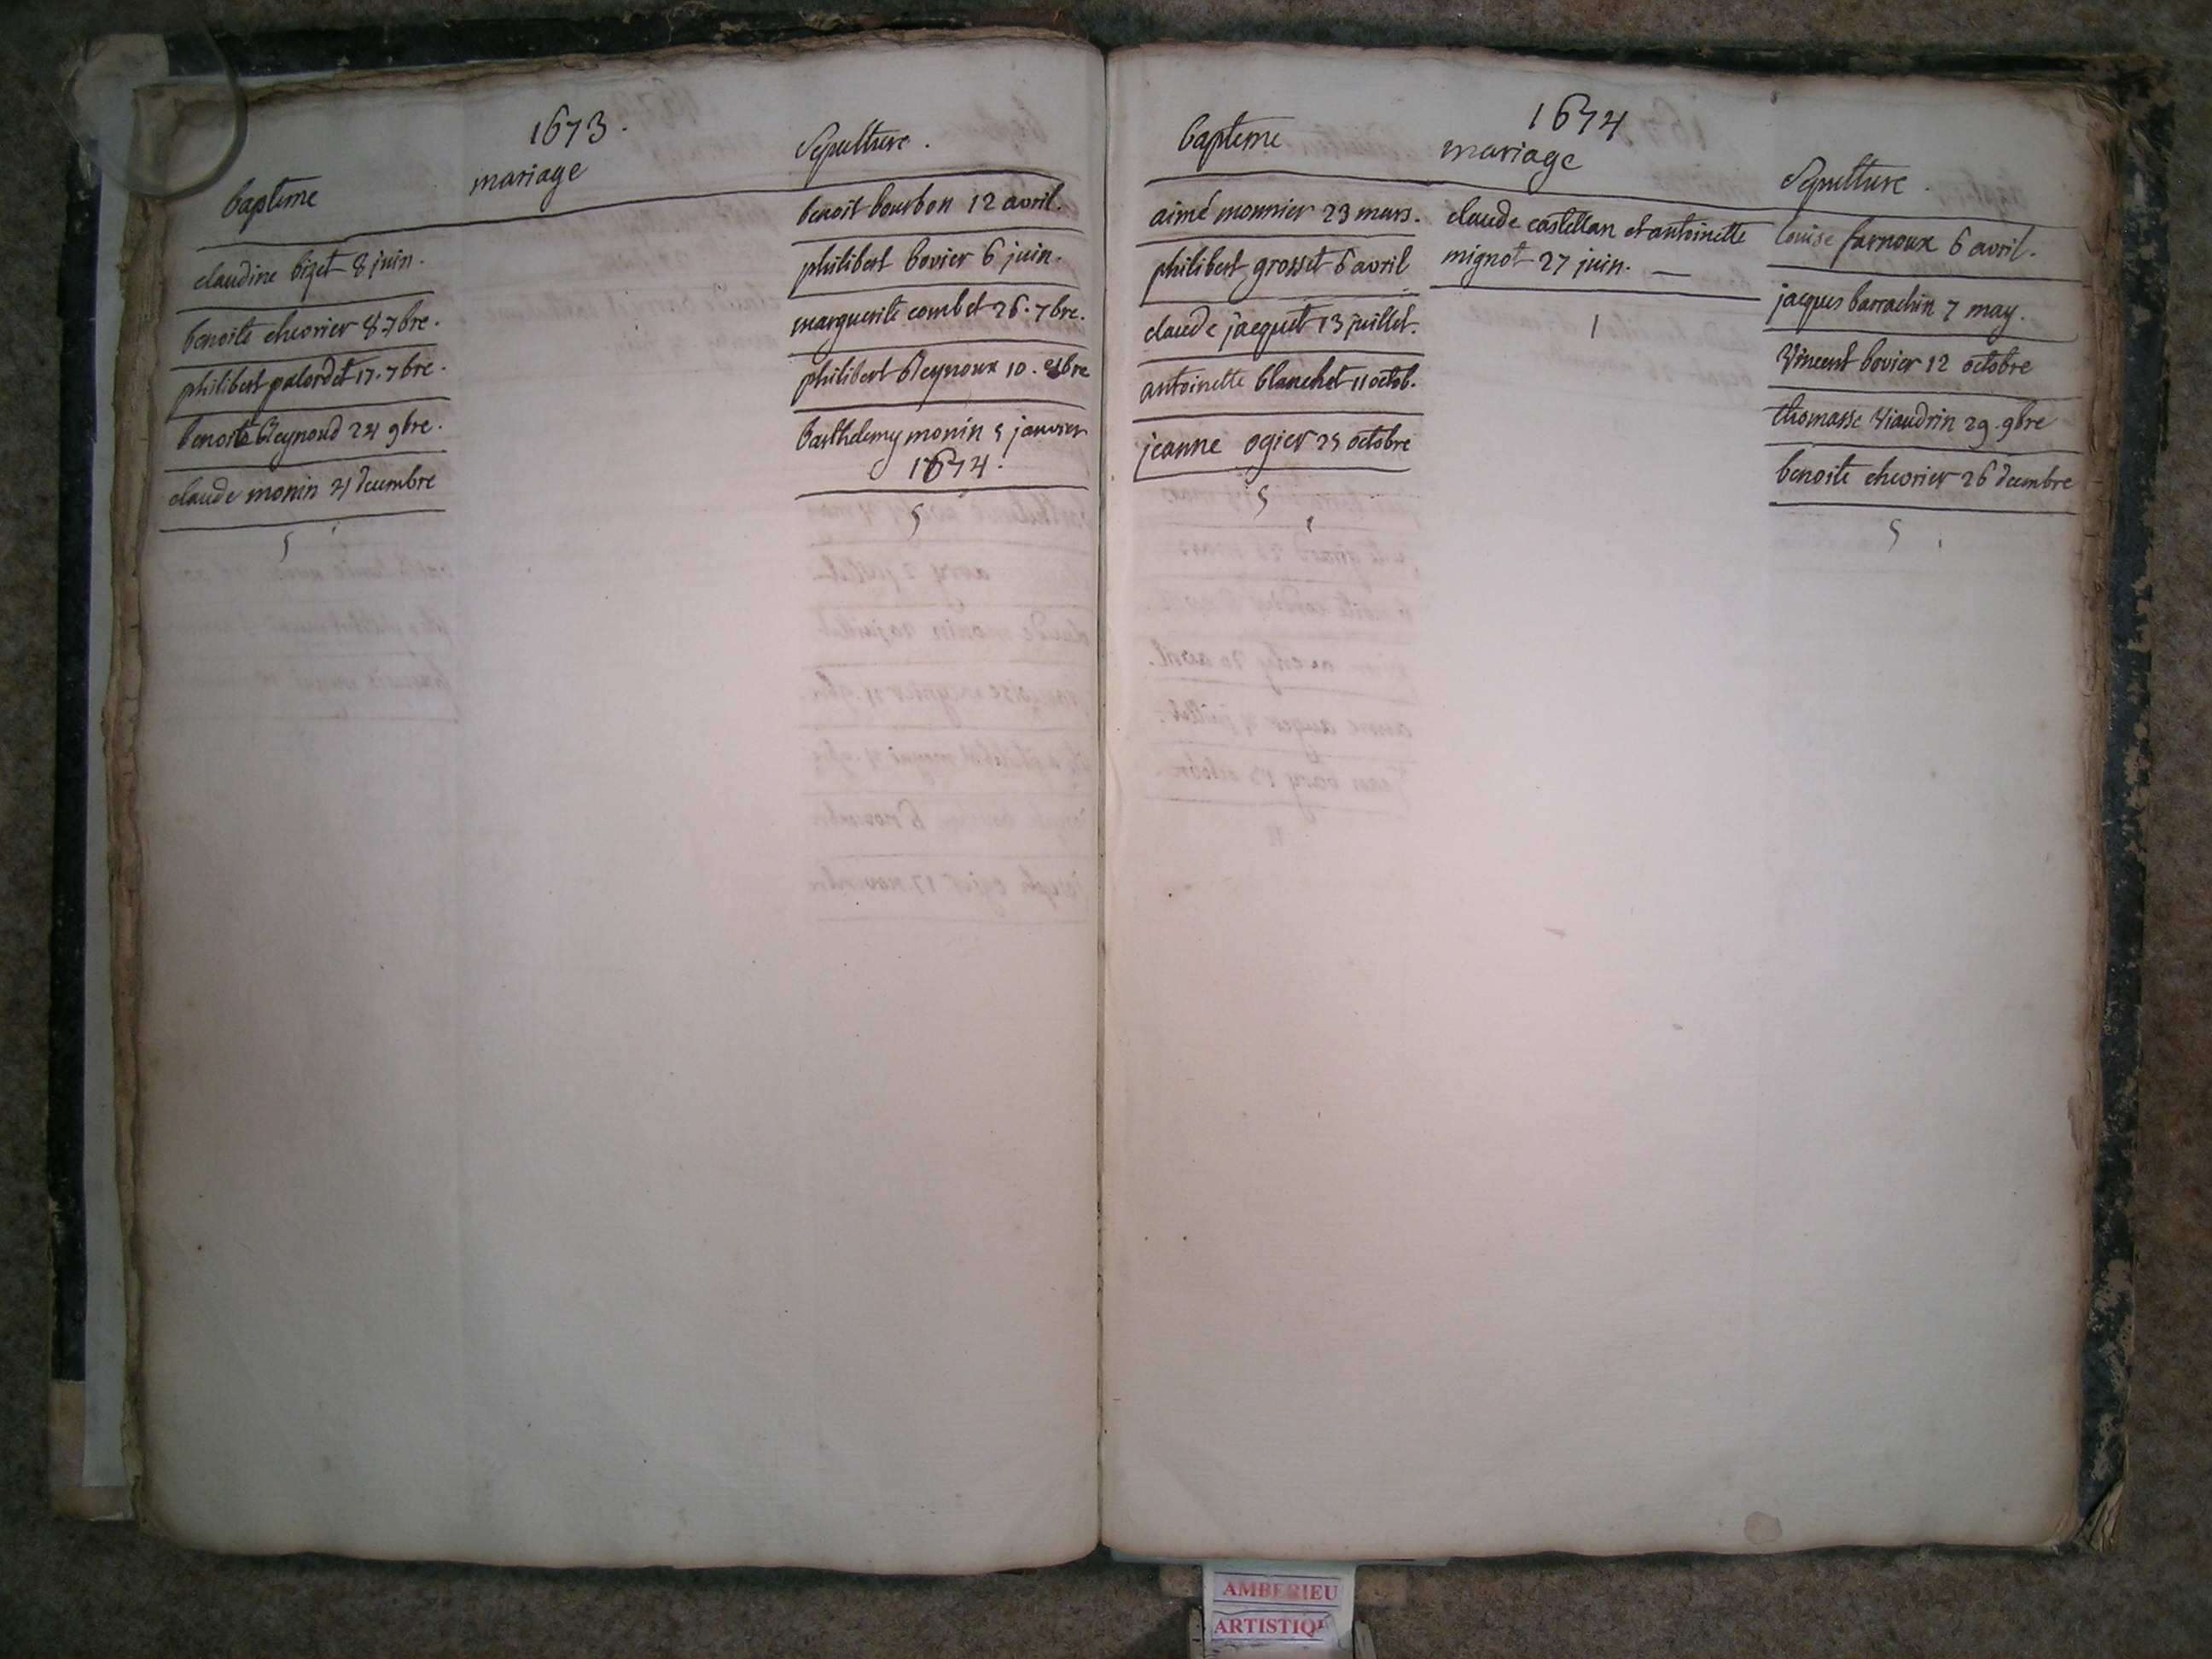 1673.
bapteme
mariage
Sepulture.
claudine bizet 8 juin.
benoite cheorier 8 7bre.
philibert palordet 17. 7bre.
benoite Reynoud 24 9bre.
claude monin 21 decembre
5
benoit bourbon 12 avril.
philibert bovier 6 juin.
marguerite combet 26. 7bre.
philibert Reynoux 10. bre
barthelemy monin 5 janvier
1674.
5
1674
bapteme
mariage
Sepulture.
aimé monnier 23 mars.
philibert grosset 6 avril
claude jacquet 13 juillet.
antoinette blanchet 11 octob.
jeanne ogier 25 octobre
5
claude castellan et antoinette
mignot 27 juin. —
1
louise farnoux 6 avril.
jacques barrachin 7 may.
Vincent bovier 12 octobre
thomasse Viaudrin 29. 9bre
benoite cheorier 26 decembre
5
AMBERIEU
ARTISTIQU